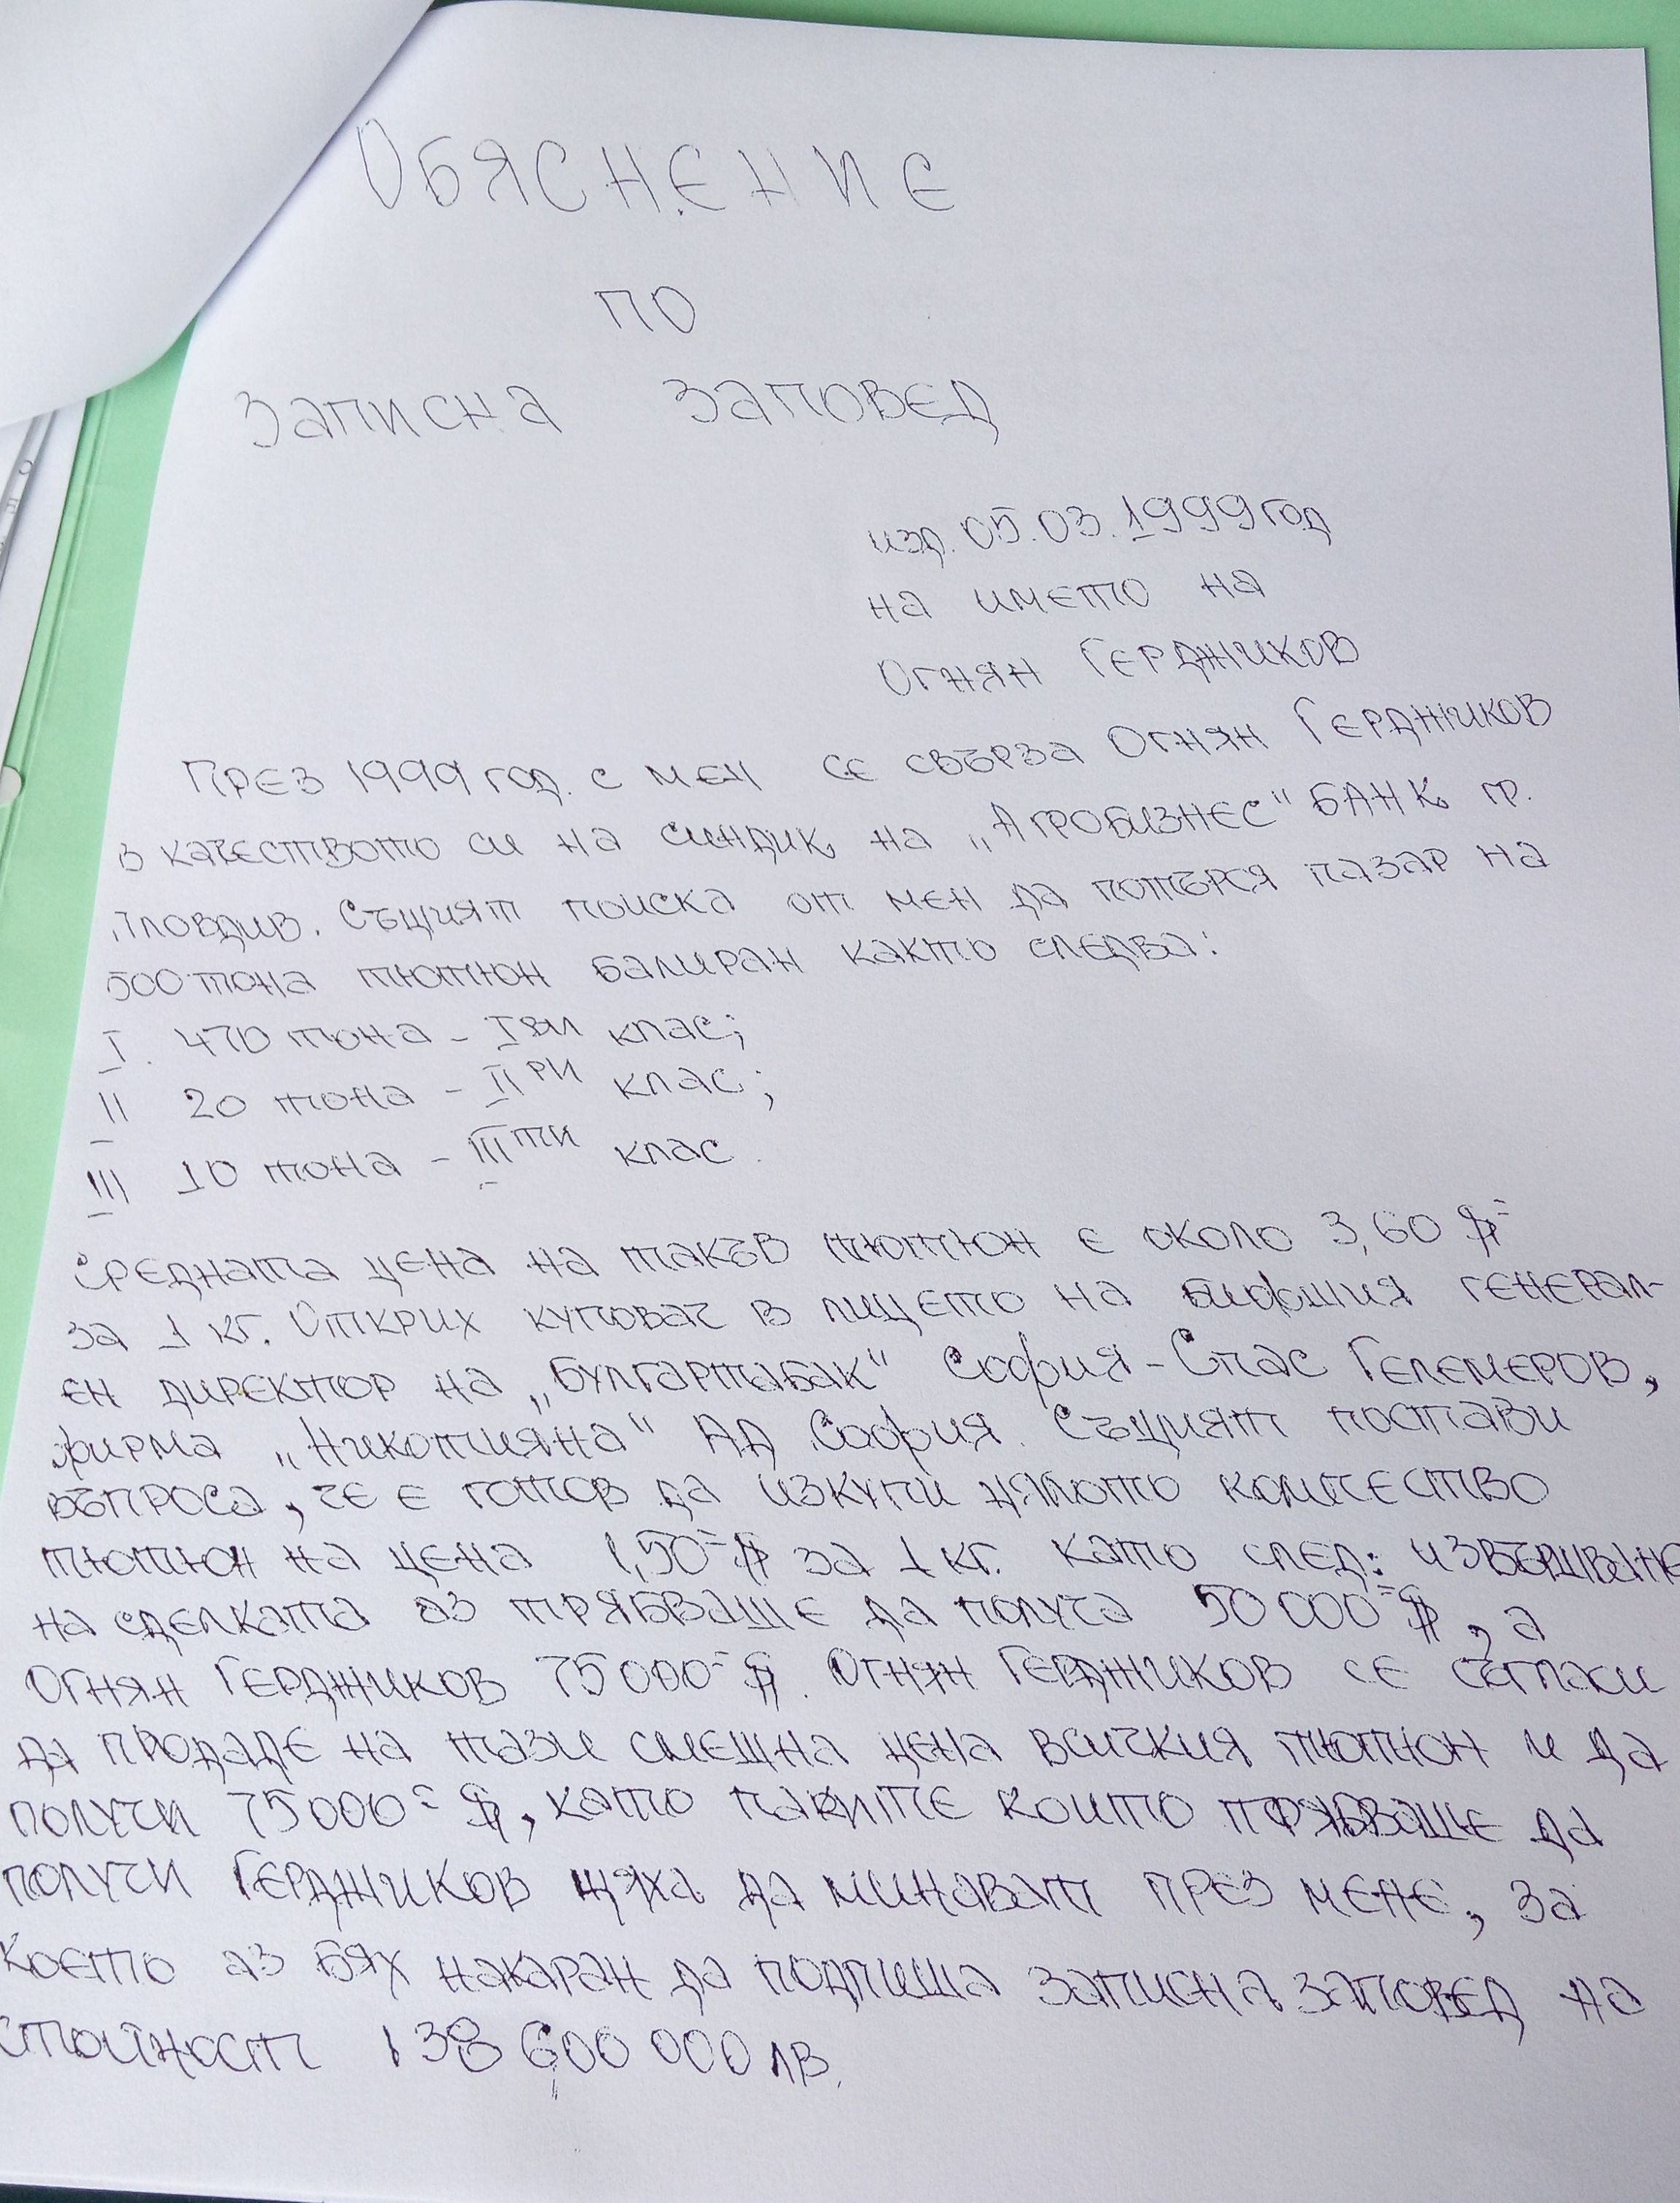 Обяснение
по
Записна заповед
изд. 05.03.1999 год
на името на
Огнян Герджиков
През 1999 год. с мен се свърза Огнян Герджиков
в качеството си на синдик на "Агробизнес" БАНК гр.
Пловдив. Същият поиска от мен да потърся пазар на
500 тона тютюн балиран както следва:
I. 470 тона - Iви клас;
II 20 тона - IIри клас;
III 10 тона - IIIти клас.
Средната цена на такъв тютюн е около 3,60 $=
за 1 кг. Открих купувач в лицето на бившия генерал-
ен директор на „Булгартабак" София - Спас Гелемеров,
фирма „Никотияна" АД София. Същият постави
въпроса, че е готов да изкупи цялото количество
тютюн на цена 1,50=$ за 1 кг. като след: извършване
на сделката аз трябваше да получа 50 000=$, а
Огнян Герджиков 75000=$. Огнян Герджиков се съгласи
да продаде на тази смешна цена всичкия тютюн и да
получи 75000=$, като парите които трябваше да
получи Герджиков щяха да минават през мене, за
което аз бях накаран да подпиша записна заповед на
стойност 138 600 000 лв.